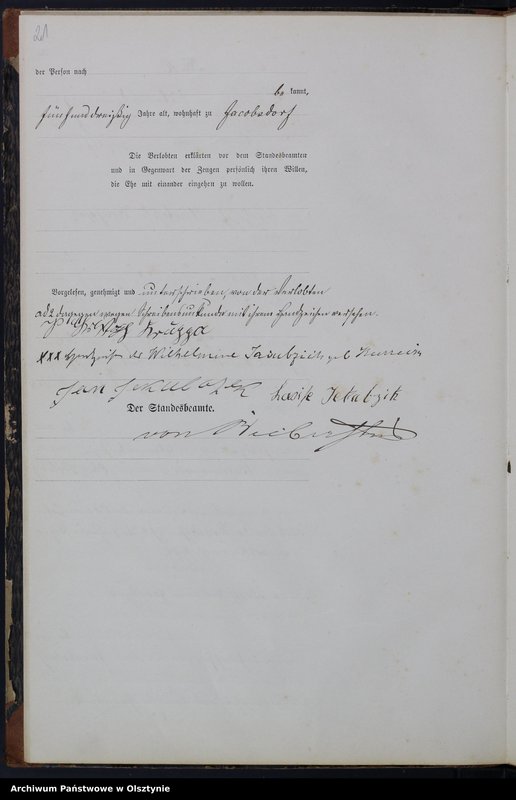 21
der Person nach
be kannt,
fünfunddreißig Jahre alt, wohnhaft zu Jacobsdorf
Die Verlobten erklärten vor dem Standesbeamten
und in Gegenwart der Zeugen persönlich ihren Willen,
die Ehe mit einander eingehen zu wollen.
Vorgelesen, genehmigt und unterschrieben, von der Verlobten
ad 2 dagegen wegen Schreibensunkunde mit ihrem Handzeichen versehen.
Krugga
+++ Handzeichen der Wilhelmine geb
Jan Luise Jekabzik
Der Standesbeamte.
von Bieberstein
Archiwum Państwowe w Olsztynie